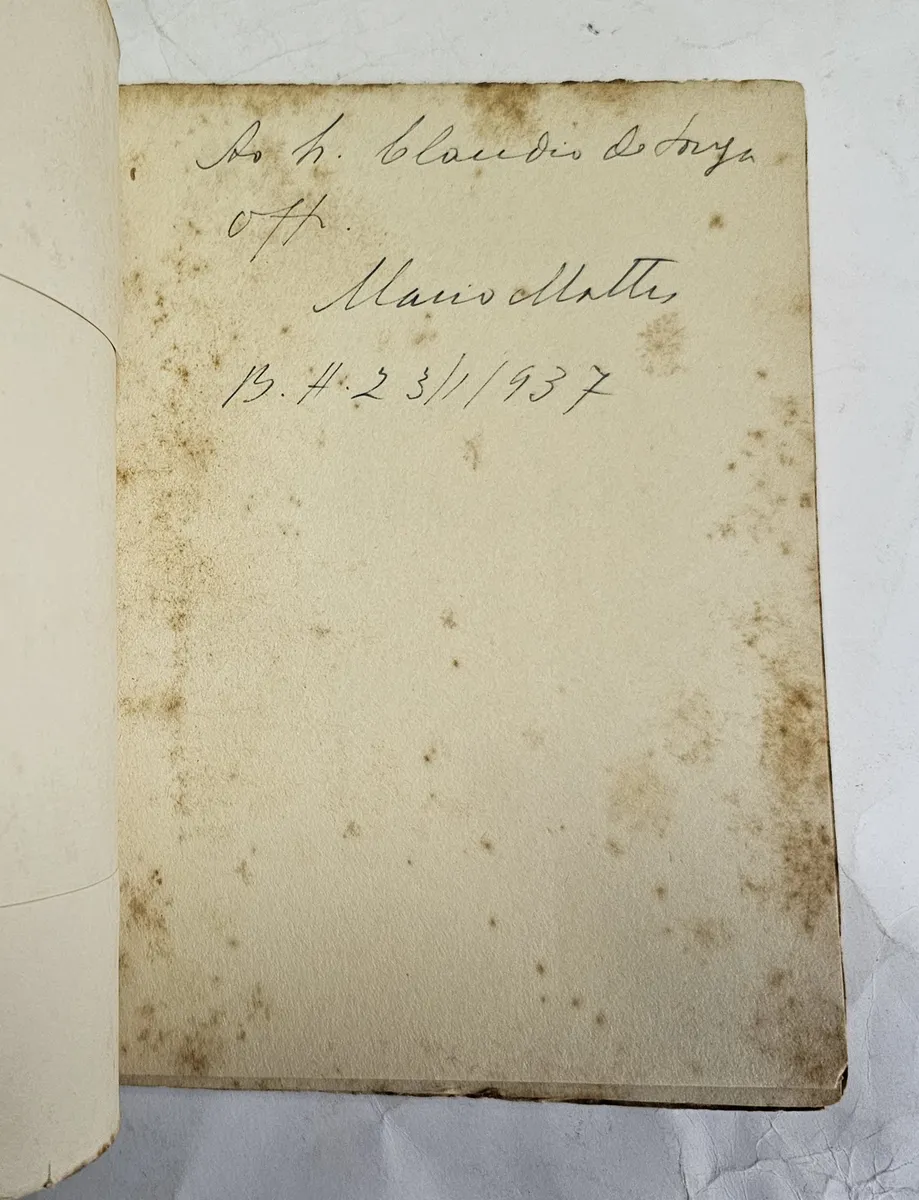 Ao h. Claudio de Souza
Off.
Mario Mattos
B. H. 23/1/937